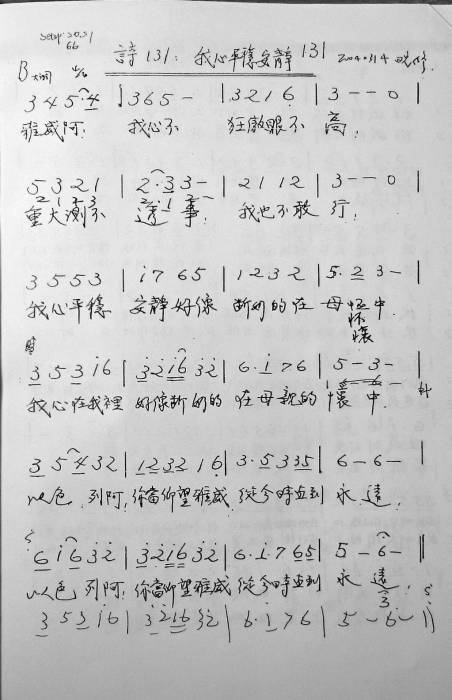 詩131: 我心平穩安靜 131
B大調 4/4
3 4 5·4 | 3 6 5 - | 3 2 1 6 | 3 - - 0 |
雅威阿, 我心不 狂傲眼不 高,
5 3 2 1 | 2·3 3 - | 2 1 1 2 | 3 - - 0 |
重大測不 透事, 我也不敢 行,
3 5 5 3 | i 7 6 5 | 1 2 3 2 | 5·2 3 - |
我心平穩 安靜好像 斷奶的在 母懷中.
懷
3 5 3 i 6 | 3 2 i 6 3 2 | 6·i 7 6 | 5 - 3 - |
我心在我裡 好像斷奶的 在母親的 懷中.
3 5 4 3 2 | 1 2 3 2 1 6 | 3·5 3 3 5 | 6 - 6 - |
以色列阿, 你當仰望雅威 從今時直到 永遠,
6 i 6 3 2 | 3 2 i 6 3 2 | 6·i·7 6 5 | 5 - 6 - ||
以色列阿, 你當仰望雅威 從今時直到 永遠,
3 5 3 i 6 | 3 2 i 6 3 2 | 6·i 7 6 | 5 - 6 - ||